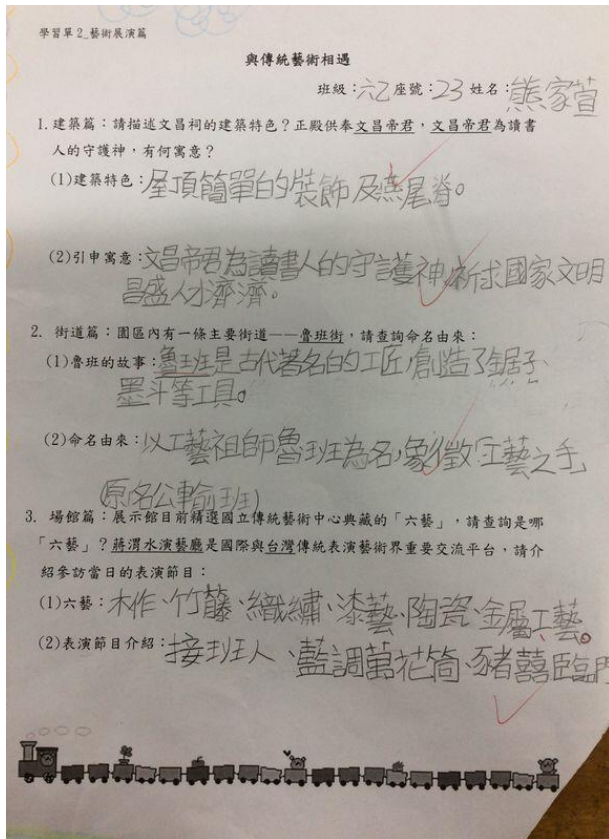 學習單2_藝術展演篇
與傳統藝術相遇
班級：六乙 座號：23 姓名：熊家萱
1.建築篇：請描述文昌祠的建築特色？正殿供奉文昌帝君，文昌帝君為讀書
人的守護神，有何寓意？
(1)建築特色：屋頂簡單的裝飾及燕尾脊。
(2)引申寓意：文昌帝君為讀書人的守護神，祈求國家文明
昌盛人才濟濟。
2. 街道篇：園區內有一條主要街道——魯班街，請查詢命名由來：
(1)魯班的故事：魯班是古代著名的工匠，創造了鋸子、
墨斗等工具。
(2)命名由來：以工藝祖師魯班為名，象徵「工藝之手」
(原名公輸班)
3. 場館篇：展示館目前精選國立傳統藝術中心典藏的「六藝」，請查詢是哪
「六藝」？蔣渭水演藝廳是國際與台灣傳統表演藝術界重要交流平台，請介
紹參訪當日的表演節目：
(1)六藝：木作、竹籐、織繡、漆藝、陶瓷、金屬工藝。
(2)表演節目介紹：接班人、藍調萬花筒、豬囍臨門